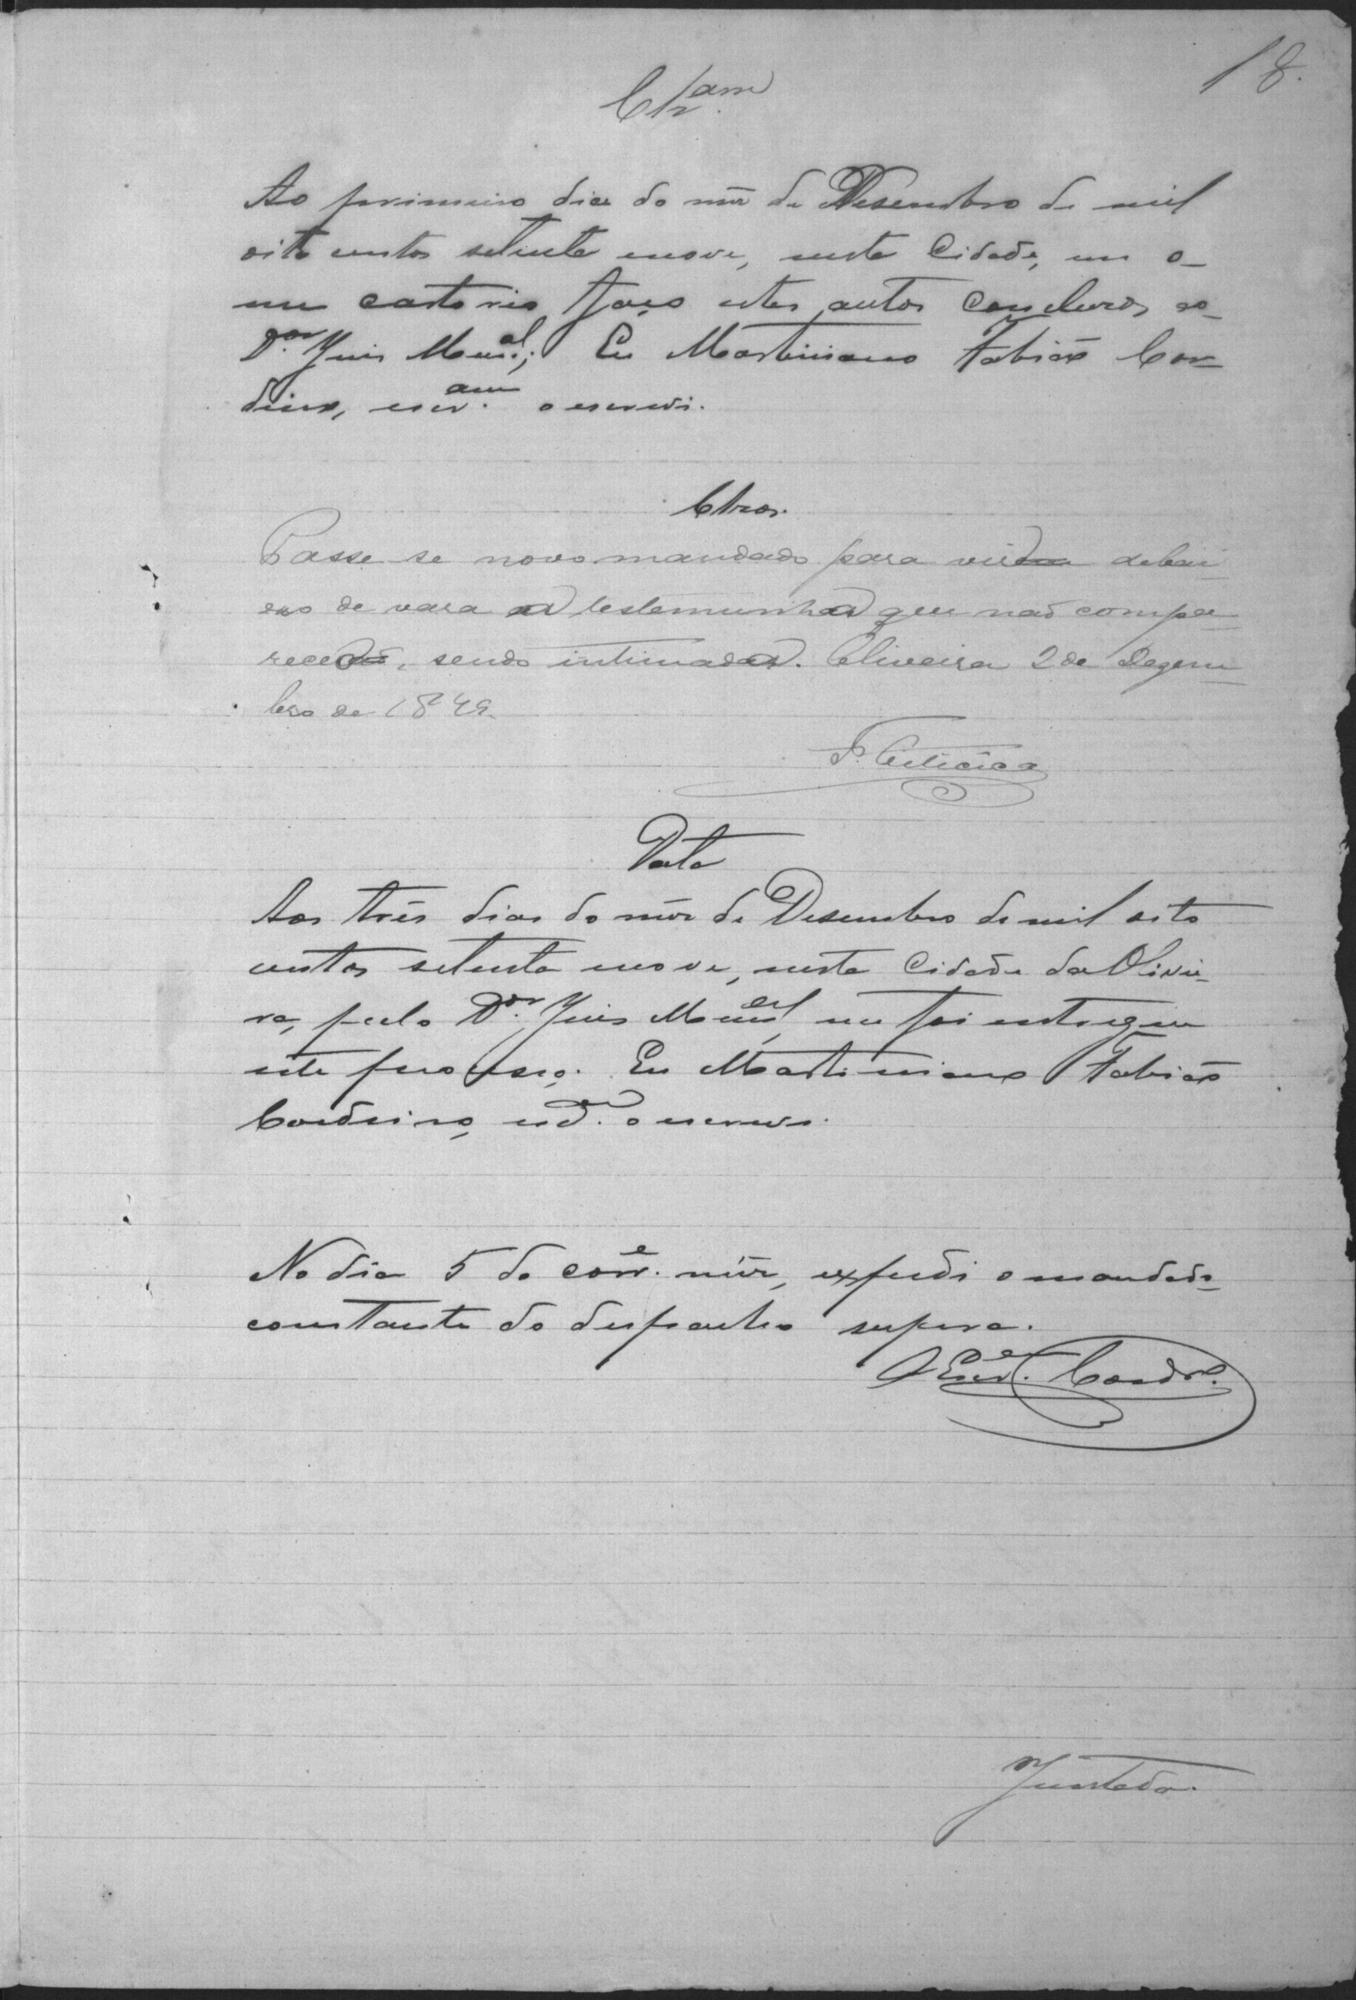 18.
Clzam
Ao primeiro dia do mêz de Desembro de mil
oito centos setente enove, nesta Cidade, em o
meu cartorio faço estes autos concluzos ao
Dor. Juis Munal; Eu Martiniano Fabião Cor
deiro, escram. o escrevi.
Clzos.
Passe-se novo mandado para vir debai
xo de vara a testemunha que não compa
receo, sendo intimada. Oliveira 2 de Dezem
bro de 1879.
Data
Aos três dias do mêz de Desembro de mil oito
centos setenta enove, nesta Cidade da Olivei
ra, pelo Dor. Juis Munal, me foi entregue
este processo. Eu Martiniano Fabião
Cordeiro, o escrevi.
No dia 5 do corre. mêz, expedi o mandado
constante do despacho supra.
O Escre. Cordro.
Juntada.